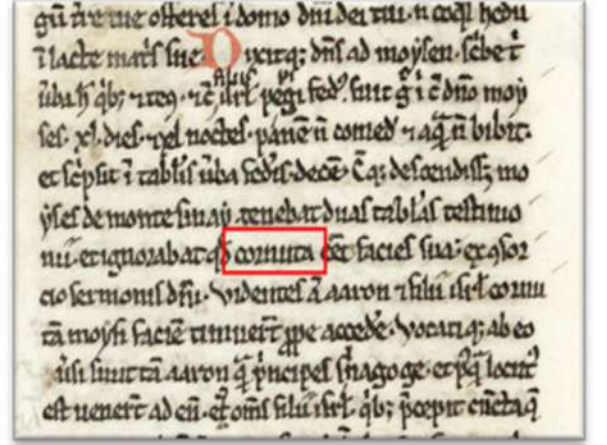 gū t̄re tue offeres i domo dn̄i dei tui. n̄ coq̄s hedū
ī lacte mat̄s sue Dixitq; dn̄s ad moysen. sc̓be t̓
ūba h̄ qb; ⁊ tecū ⁊ c̄ filiis isrl̄ pepigi fed⁹. fuit g̓ i c̄ dn̄o moy
ses .xl. dies ⁊ xl noctes. panē n̄ comed̓ ⁊ aq̄ n̄ bibit.
et sc̓psit ī tabl̓is ūba fed̓is decē. Cūq; descendiss; mo
yses de monte sinaẏ tenebat duas tabl̓as testimo
nii. et ignorabat qd̓ cornuta e̅et facies sua. ex ꝯsor
cio sermonis dn̄i. Videntes ā aaron ⁊ filii isrl̄ cornu
tā moysi faciē timuer̄t ꝓpe accede̓. Vocatiq; ab eo
sunt tā aaron q̄ p̓ncipes sẏnagoge. et pq̄ locut⁹
est uener̄t ad eū. et om̄s filii isrl̄. qb; p̓cepit cūcta q̄